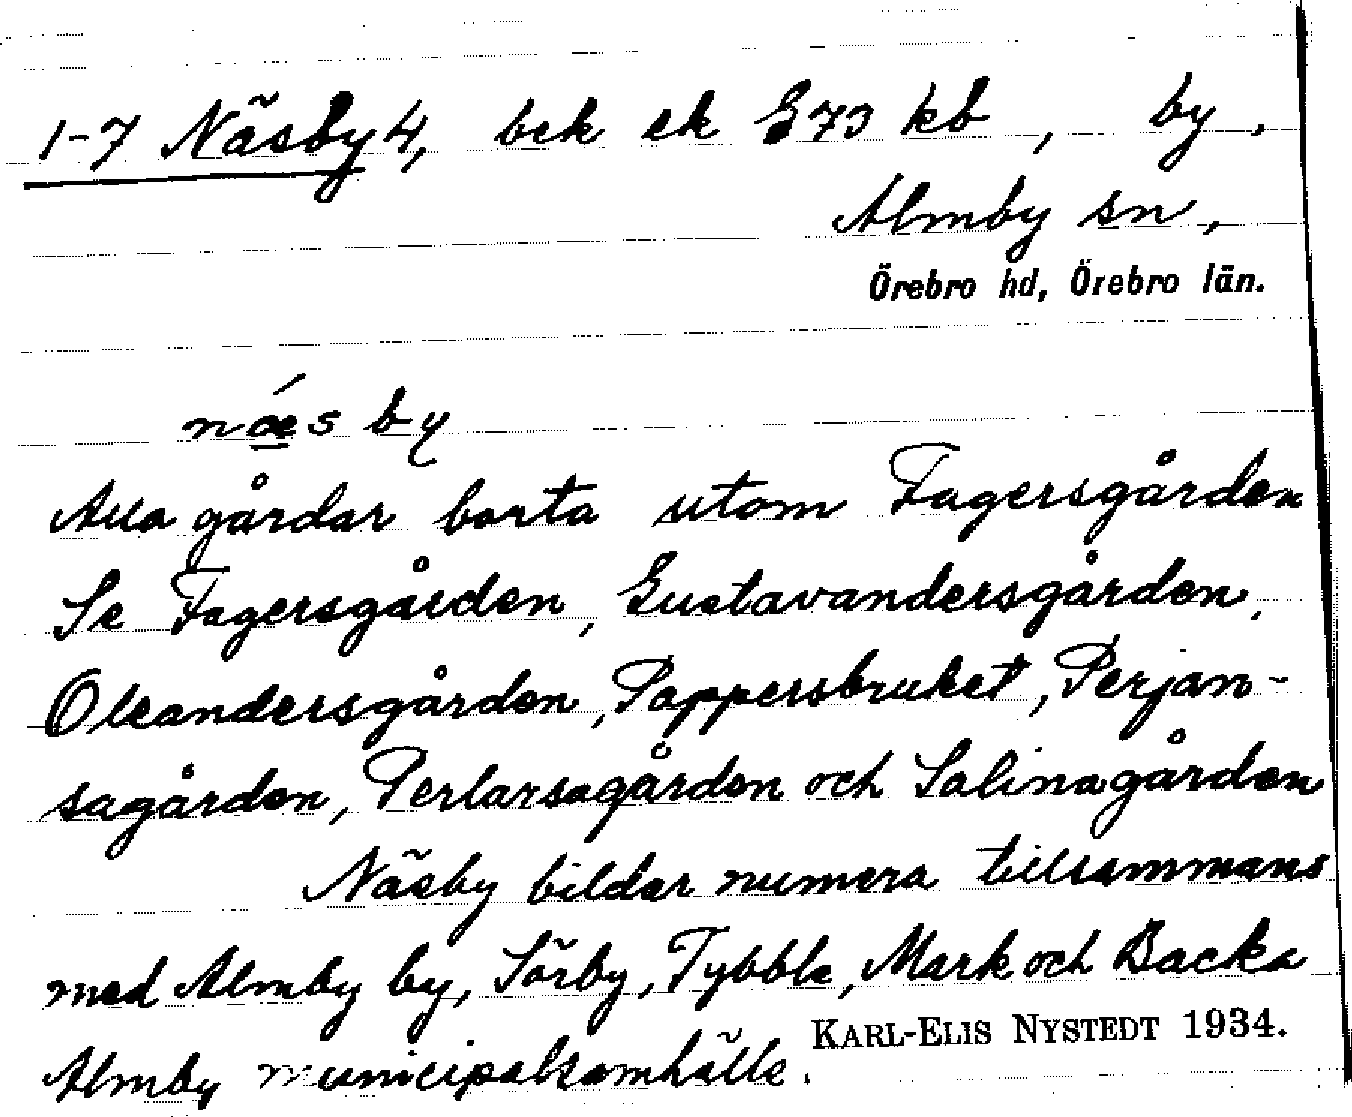 1-7 Näsby 4, bek ek E73 kb, by,
Almby sn,
Örebro hd, Örebro län.
nǽsby
Alla gårdar borta utom Fagersgården
Se Fagersgården, Gustavandersgården,
Oleandersgården, Pappersbruket, Perjan-
sagården, Perlarsagården och Salinagården
Näsby bildar numera tillsammans
med Almby by, Sörby, Tybble, Mark och Backa
Almby municipalsamhälle.
KARL-ELIS NYSTEDT 1934.